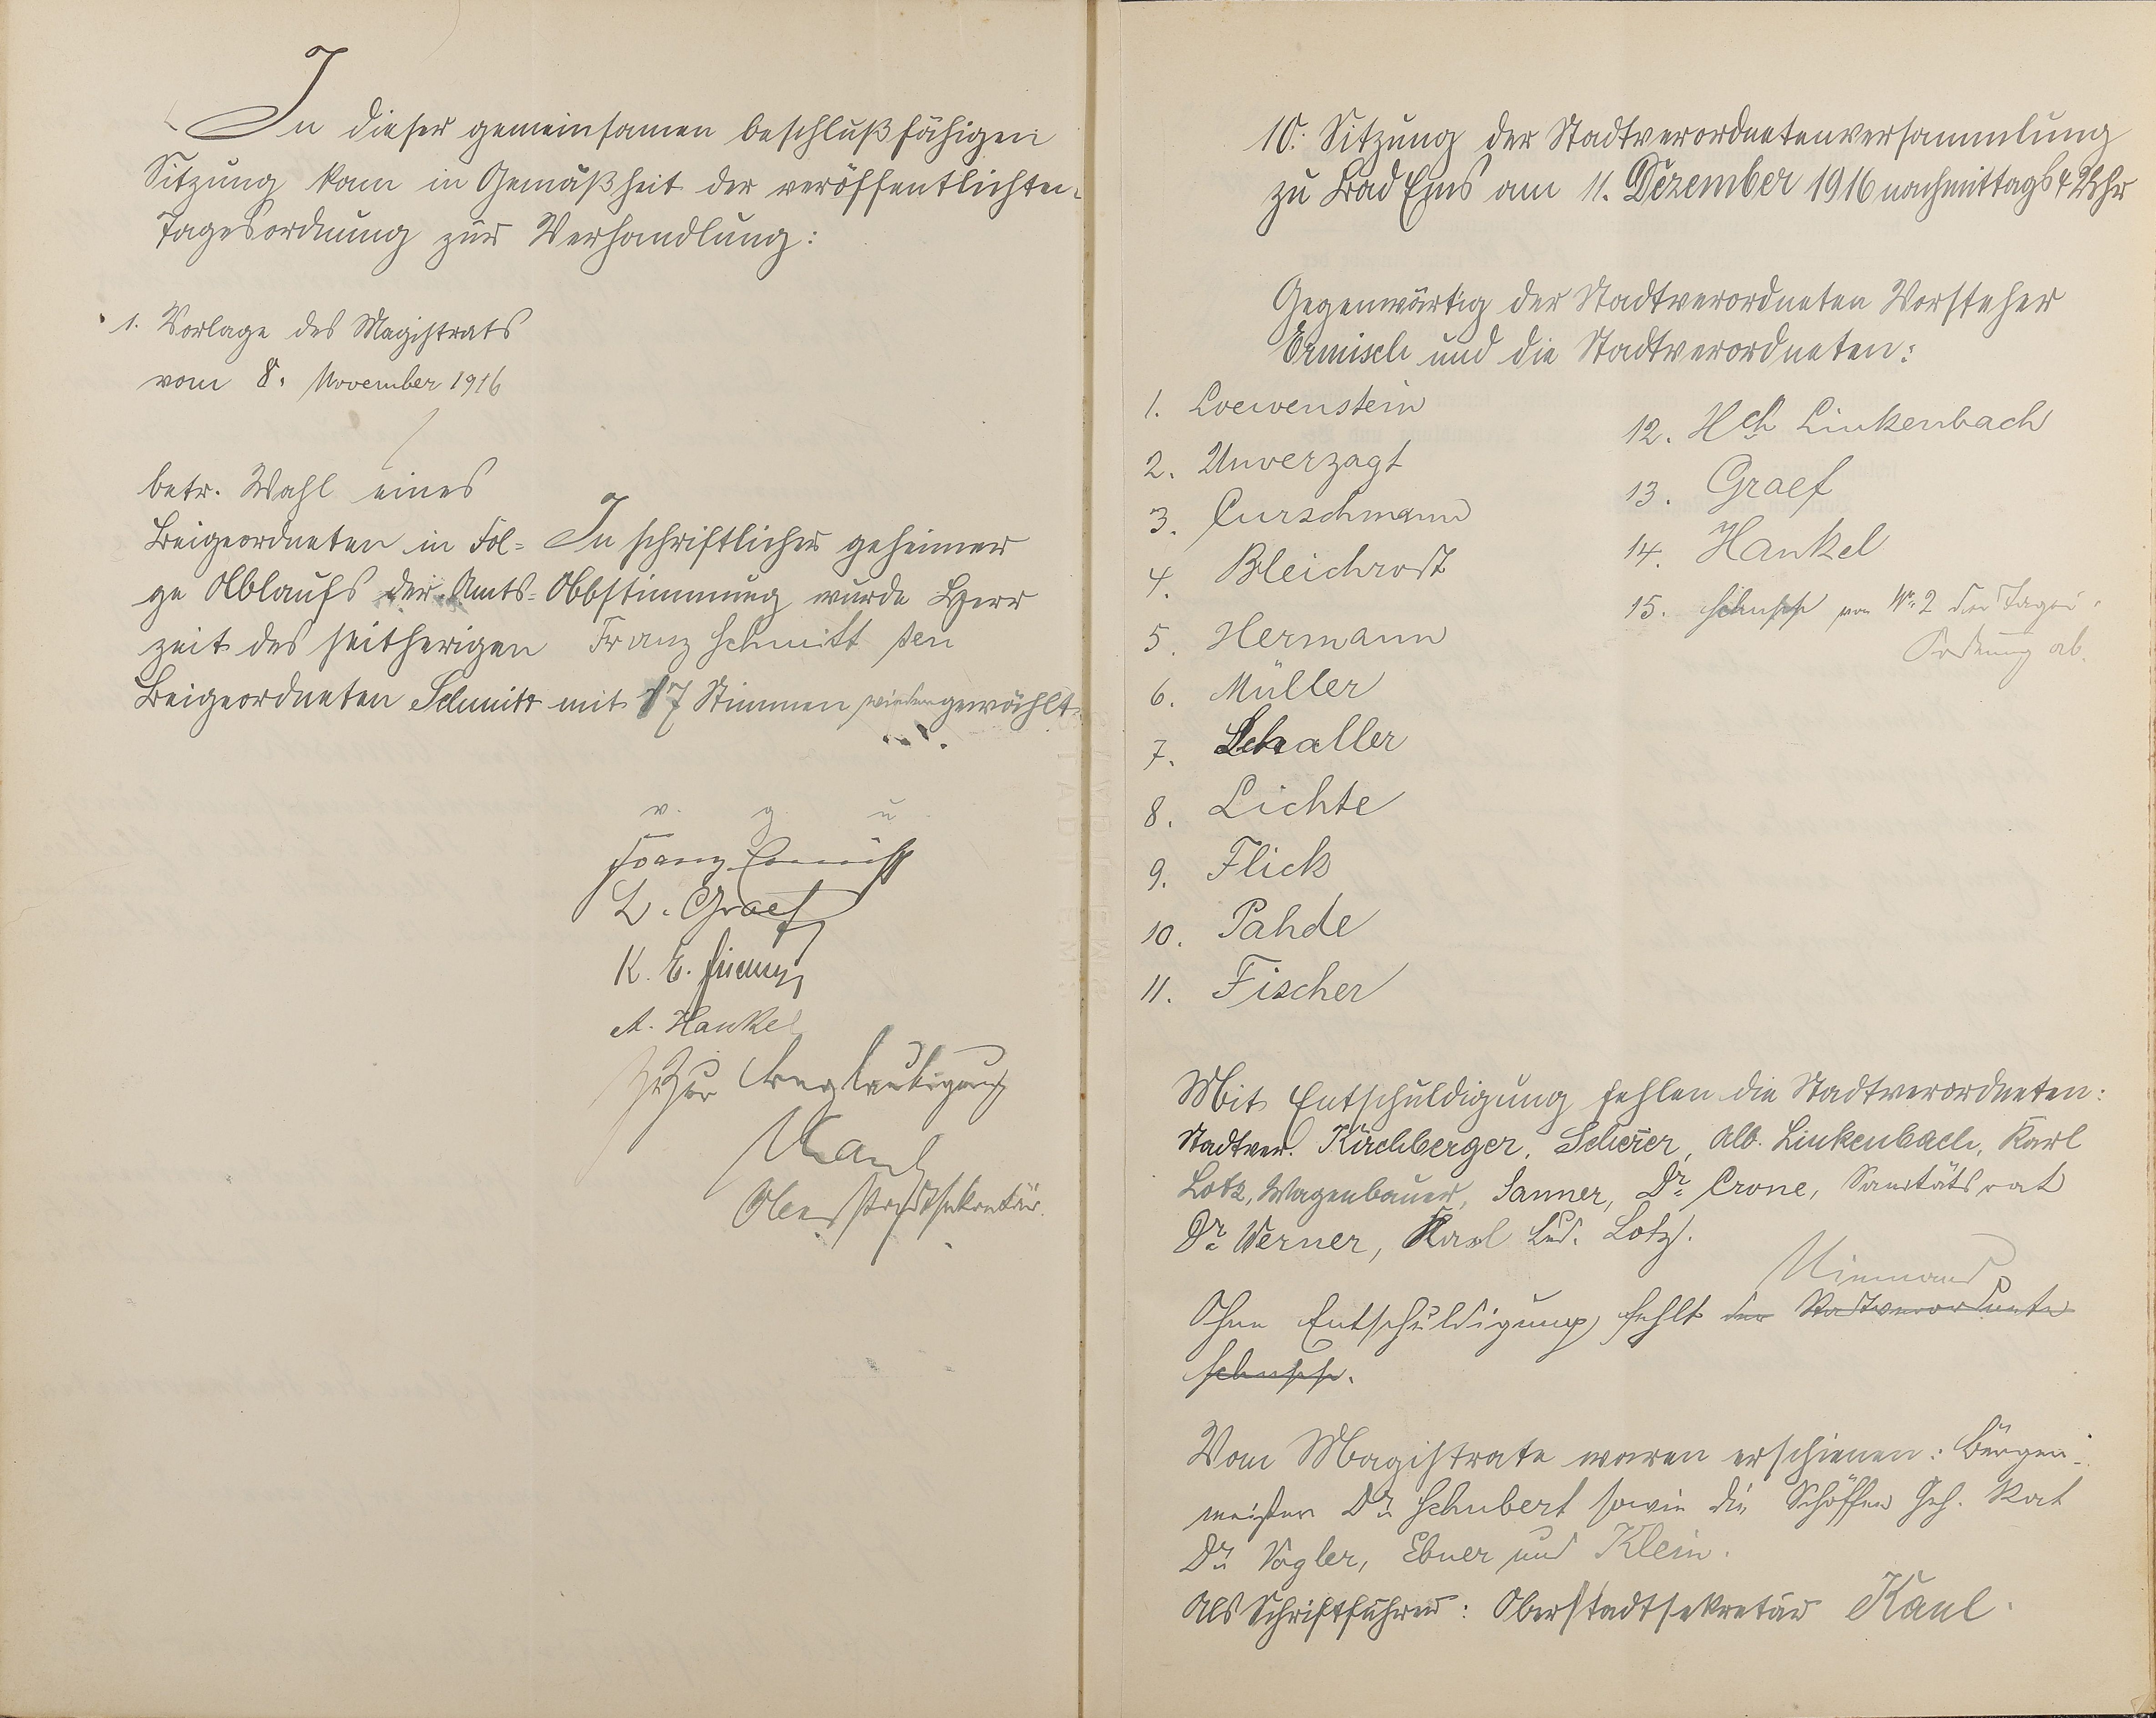 In dieser gemeinsamen beschlußfähigen
Sitzung kam in Gemäßheit der veröffentlichten
Tagesordnung zur Verhandlung:
1. Vorlage des Magistrats
vom 8. November 1916
betr. Wahl eines
Beigeordneten in Fol-
ge Ablaufs der Amts-
zeit des seitherigen
Beigeordneten Schmitt
In schriftlicher geheimer
Abbstimmung wurde Herr
Franz Schmitt sen
mit 17 Stimmen wiedergewählt.
v. g. u
Franz Ermisch
L. Graef
K. E.
A. Hankel
Zur Beglaubigung
Kaul
Oberstadtsekretär.
10. Sitzung der Stadtverordnetenversammlung
zu Bad Ems am 11. Dezember 1916 nachmittags 4 Uhr
Gegenwärtig der Stadtverordneten Vorsteher
Ermisch und die Stadtverordneten:
1. Loewenstein
2. Unverzagt
3. Curschmann
4. Bleichrodt
5. Hermann
6. Müller
7. Schaller
8. Lichte
9. Flick
10. Pahde
11. Fischer
12. Hch Linkenbach
13. Graef
14. Hankel
15. Schupp von Nr. 2 der Tages-
Ordnung ab.
Mit Entschuldigung fehlen die Stadtverordneten:
Stadtver. Kirchberger, Scherer, Alb. Linkenbach, Karl
Lotz, Wagenbauer, Sanner, Dr. Crone, Sanitätsrat
Dr. Werner, Karl Lud. Lotz.
Niemand
Ohne Entschuldigung fehlt der Stadtverordnete
Schupp.
Vom Magistrate waren erschienen: Bürger-
meister Dr. Schubert sowie die Schöffen Geh. Rat
Dr. Vogler, Ebner und Klein.
Als Schriftführer: Oberstadtsekretär Kaul.